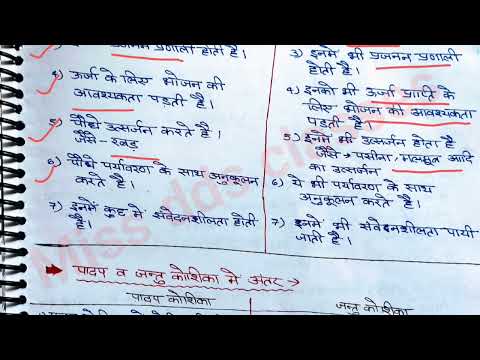 प्रजनन प्रणाली होती है।
4) ऊर्जा के लिए भोजन की
आवश्यकता पड़ती है।
5) पौधे उत्सर्जन करते है।
जैसे- रबड़
6) पौधे पर्यावरण के साथ अनुकूलन
करते है।
7) इनमें कुछ मे संवेदनशीलता होती
है।
3) इनमे भी प्रजनन प्रणाली
होती है।
4) इनको भी ऊर्जा प्राप्ति के
लिए भोजन की आवश्यकता
पड़ती है।
5) इनमे भी उत्सर्जन होता है
जैसे → पसीना, मलमूत्र आदि
का उत्सर्जन
6) ये भी पर्यावरण के साथ
अनुकूलन करते है।
7) इनमे भी संवेदनशीलता पायी
जाती है।
पादप व जन्तु कोशिका मे अंतर →
पादप कोशिका
जन्तु कोशिका